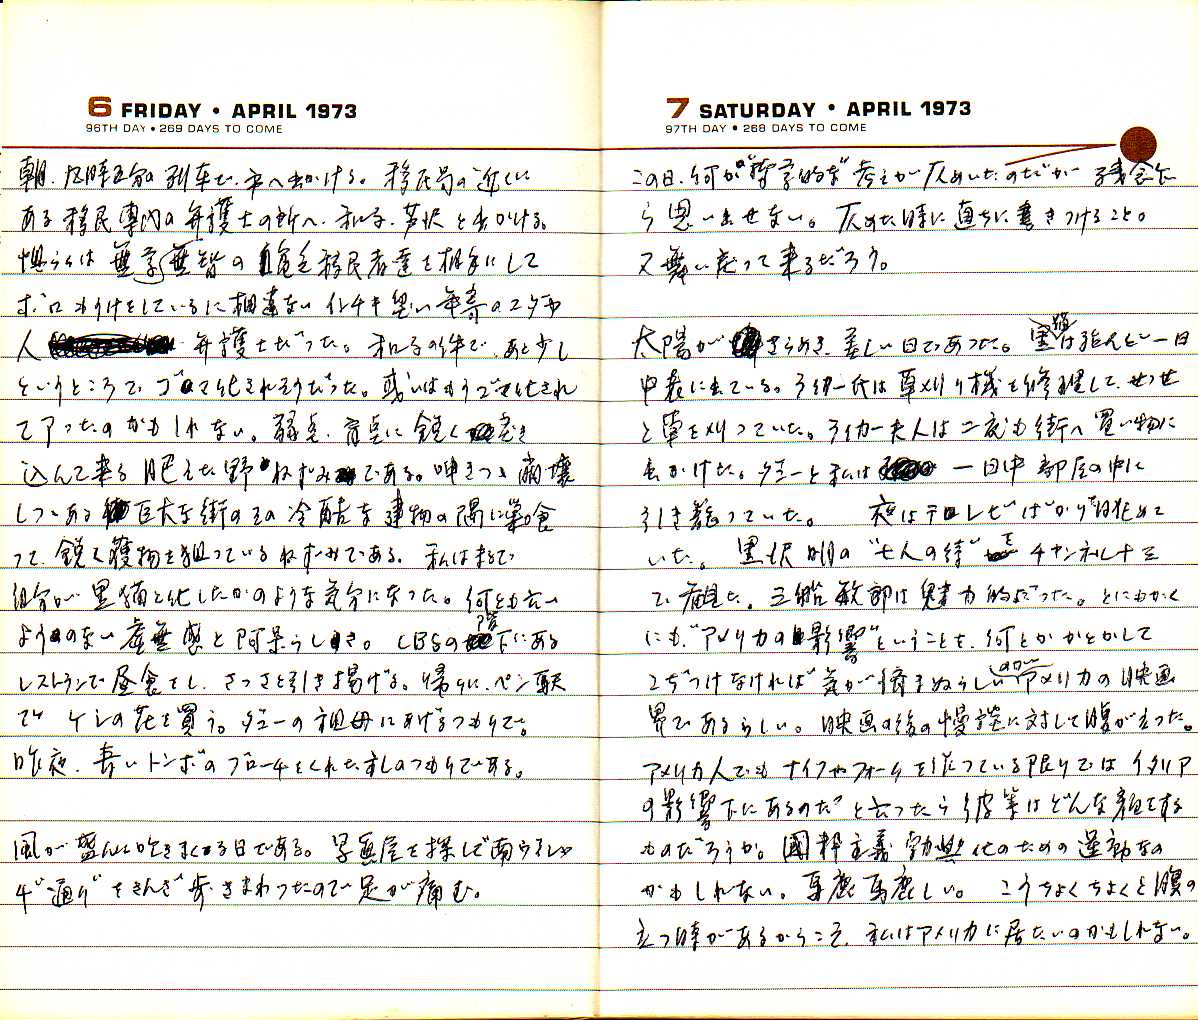 6 FRIDAY • APRIL 1973
96TH DAY • 269 DAYS TO COME
朝、九時五分の列車で、市へ出かける。移民局の近くに
ある移民専門の弁護士の所へ、和子、芦沢と出かける。
無学無智の 移民者達を相手にして
ボロもうけをしているに相違ない インチキ臭い年寄のユダヤ
人 弁護士だった。和子の件で、あと少し
というところでゴマ化されそうだった。或いはもうゴマ化され
て了ったのかもしれない。弱点、盲点に鋭く
込んで来る肥えた野ねずみである。呻きつゝ崩壊
しつゝある巨大な街のその冷酷な建物の隅に巣食
って、鋭く獲物を狙っているねずみである。私はまるで
自分が黒猫と化したかのような気分になった。何とも云い
ようのない虚無感と阿呆らしさ。CBSの階下にある
レストランで昼食をし、さっさと引き揚げる。帰りに、ペン駅
で の花を買う。 の祖母にあげるつもりで。
昨夜、青いトンボのブローチをくれたお礼のつもりである。
風が盛んに吹きまくる日である。 屋を探して
通りをさんざ歩きまわったので足が痛む。
7 SATURDAY • APRIL 1973
97TH DAY • 268 DAYS TO COME
この日、何か"哲学的な"考えが仄めいたのだが 残念乍
ら思い出せない。仄めいた時に直ちに書きつけること。
又舞い戻って来るだろう。
太陽がきらめき、美しい日であった。黒猫は殆んど一日
中表に出ている。ライカー氏は草刈り機を修理して、せっせ
と草を刈っていた。ライカー夫人は二度も街へ買い物に
出かけた。 と私は 一日中部屋の中に
引き籠っていた。 夜はテレビばかり眺めて
いた。黒沢明の"七人の侍"を チャンネル十三
で観た。三船敏郎は魅力的だった。とにもかく
にも、"アメリカの影響"ということを、何とかかとかして
こぢつけなければ気が済まぬらしい アメリカの映画
界であるらしい。映画の後の漫談に対して腹が立った。
アメリカ人でもナイフやフォークを使っている限りではイタリア
の影響下にあるのだ"と云ったら彼等はどんな顔をする
ものだろうか。國粋主義 化のための運動なの
かもしれない。馬鹿馬鹿しい。 こうちょくちょくと腹の
立つ時があるからこそ、私はアメリカに居たいのかもしれない。